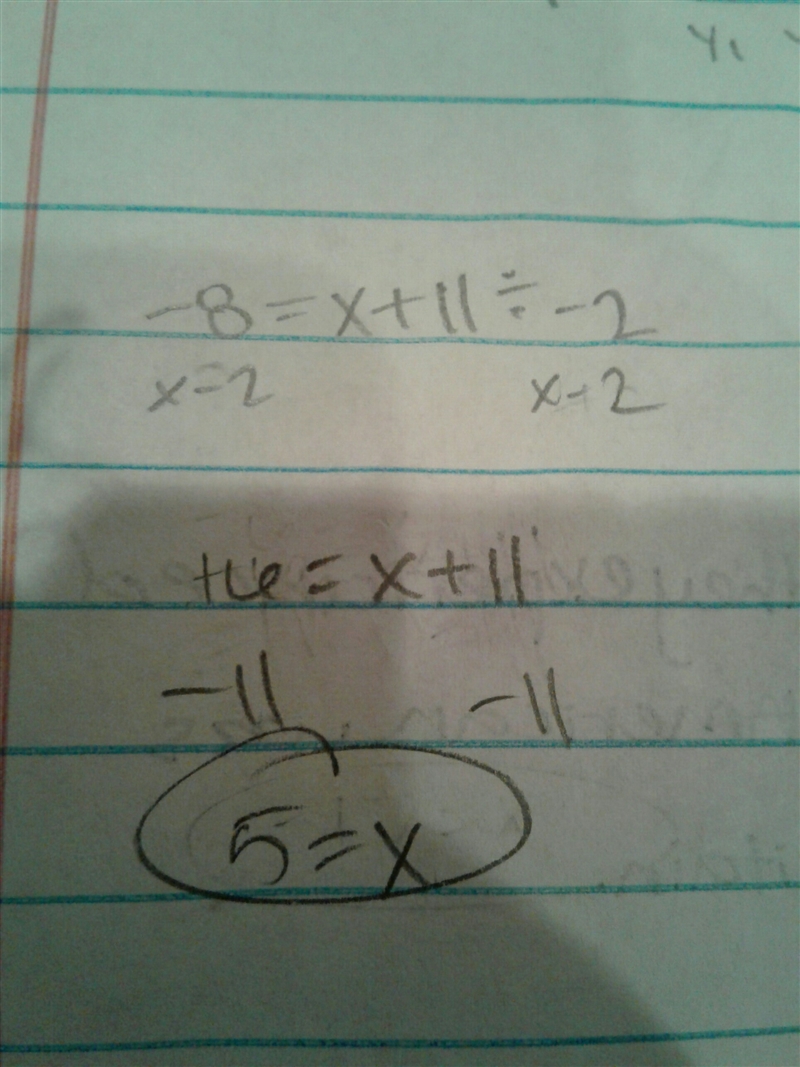 Y1
-8=x+11÷-2
x-2 x-2
+16=x+11
-11 -11
5=x